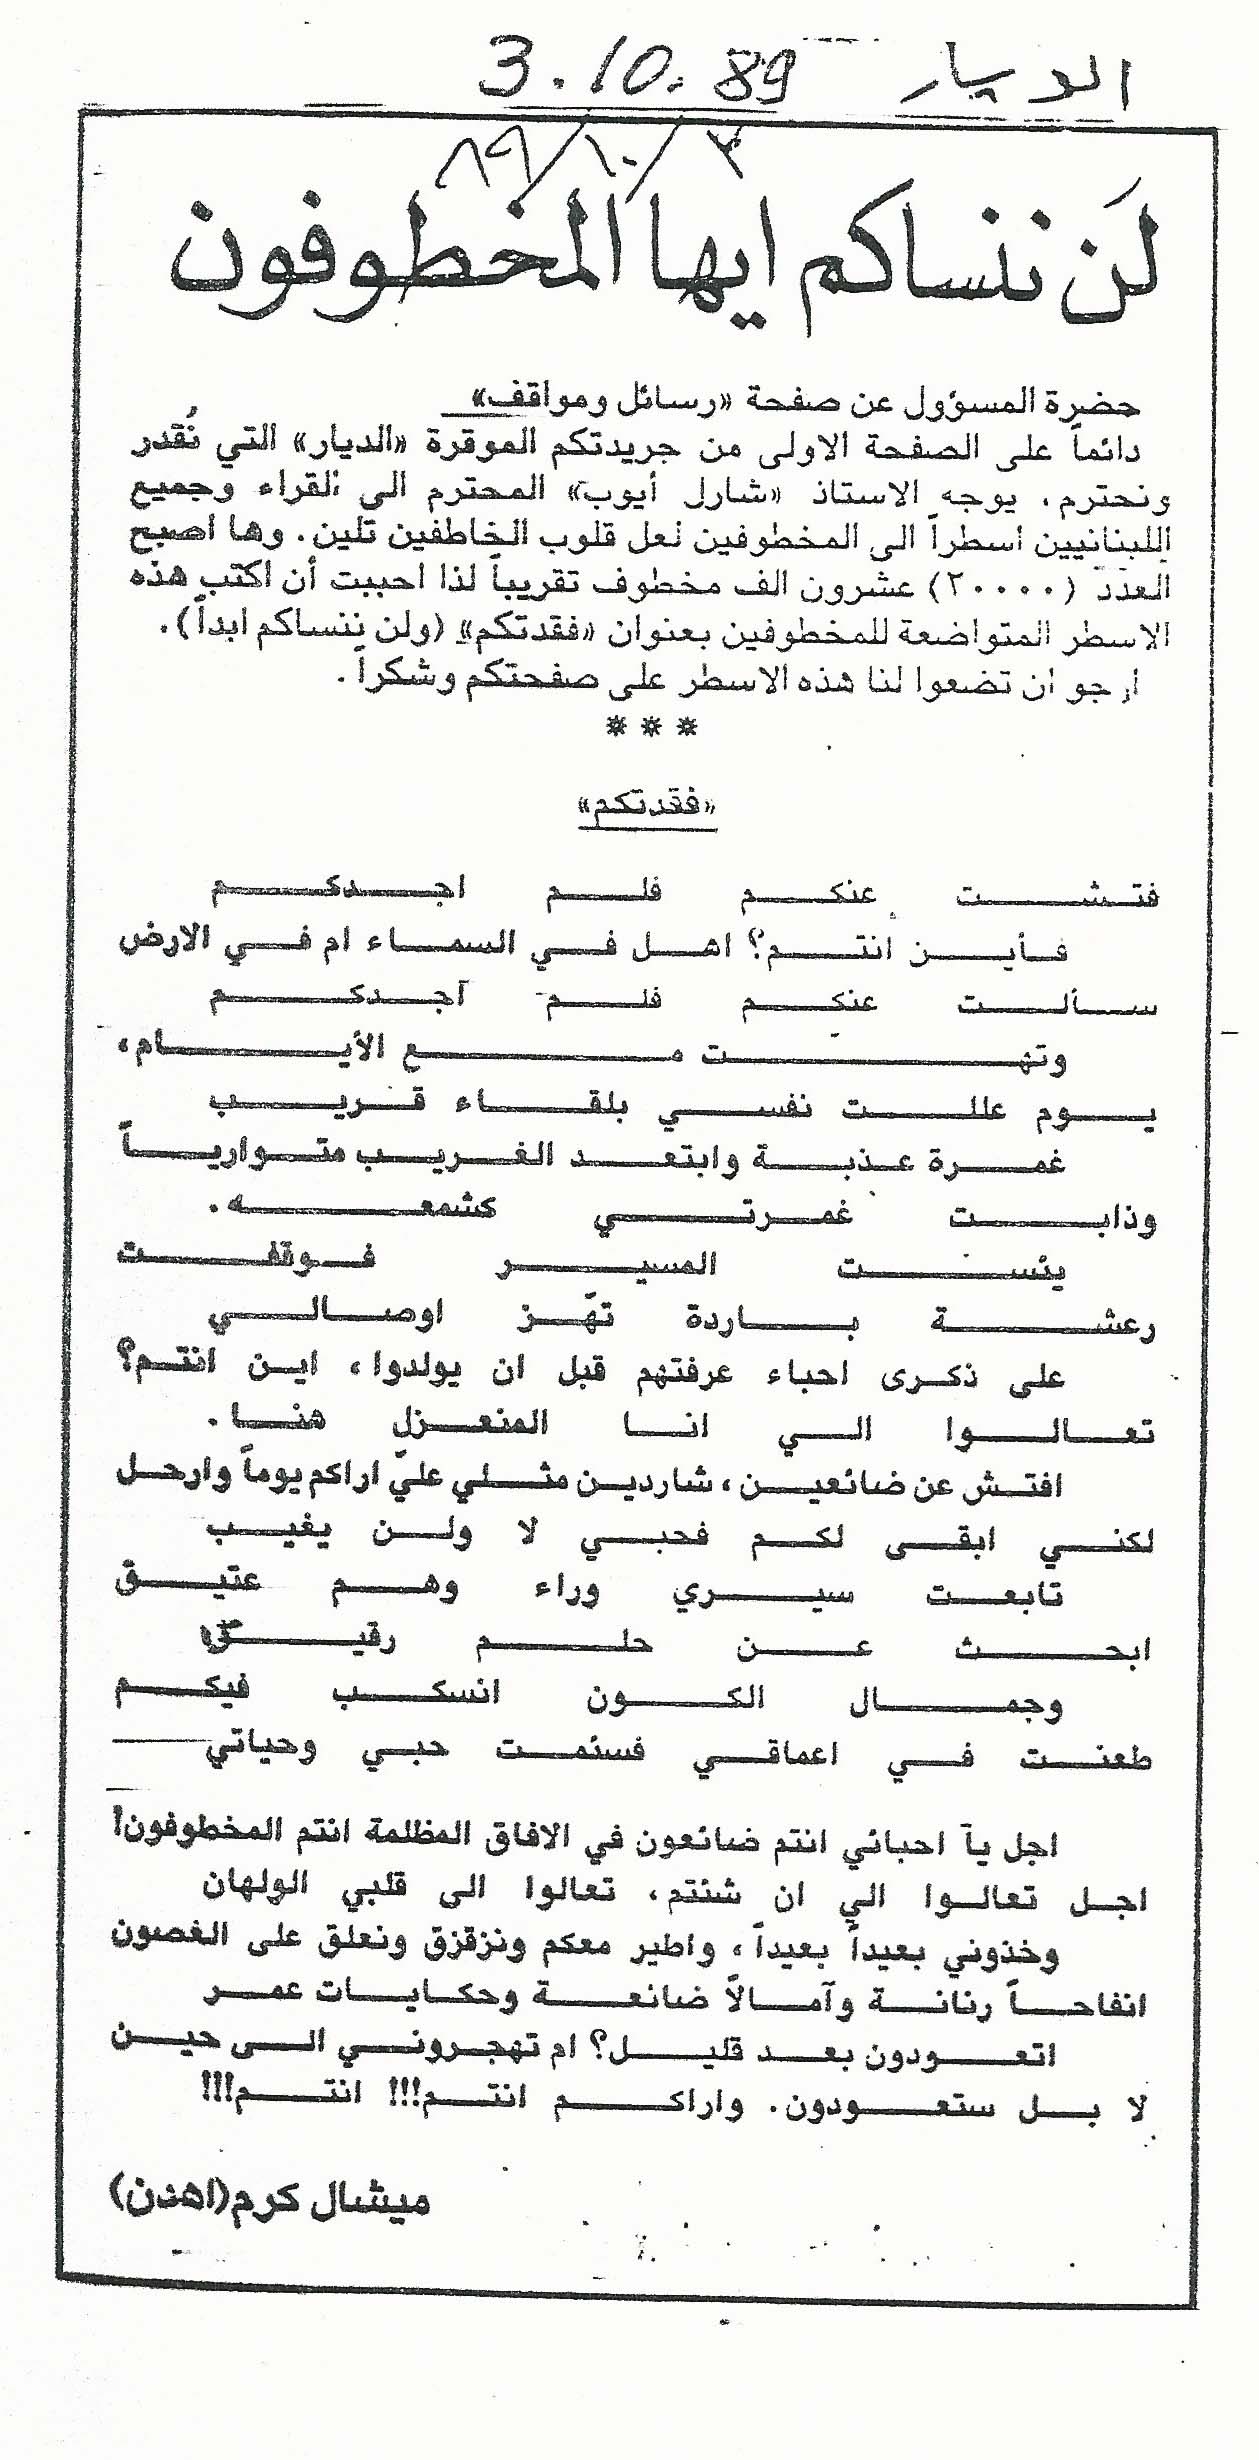 الديار 3.10.89
٣/١٠/٨٩
لَن ننساكم ايها المخطوفون
حضرة المسؤول عن صفحة «رسائل ومواقف»
دائماً على الصفحة الاولى من جريدتكم الموقرة «الديار» التي نُقدر
ونحترم، يوجه الاستاذ «شارل أيوب» المحترم الى القراء وجميع
اللبنانيين اسطراً الى المخطوفين لعل قلوب الخاطفين تلين. وها اصبح
العدد (٢٠٠٠٠) عشرون الف مخطوف تقريباً لذا احببت أن اكتب هذه
الاسطر المتواضعة للمخطوفين بعنوان «فقدتكم» (ولن ننساكم ابداً).
ارجو ان تضعوا لنا هذه الاسطر على صفحتكم وشكراً.
***
«فقدتكم»
فتشت عنكم فلم اجدكم
فأين انتم؟ اهل في السماء ام في الارض
سألت عنكم فلم اجدكم
وتهت مع الأيام،
يوم عللت نفسي بلقاء قريب
غمرة عذبة وابتعد الغريب متوارياً
وذابت غمرتي كشمعه.
يئست المسير فوقفت
رعشة باردة تهّز اوصالي
على ذكرى احباء عرفتهم قبل ان يولدوا، اين انتم؟
تعالوا الي انا المنعزل هنا.
افتش عن ضائعين، شاردين مثلي عليّ اراكم يوماً وارحل
لكني ابقى لكم فحبي لا ولن يغيب
تابعت سيري وراء وهم عتيق
ابحث عن حلم رقيق
وجمال الكون انسكب فيكم
طعنت في اعماقي فسئمت حبي وحياتي
اجل يا احبائي انتم ضائعون في الافاق المظلمة انتم المخطوفون!
اجل تعالوا الي ان شئتم، تعالوا الى قلبي الولهان
وخذوني بعيداً بعيداً، واطير معكم ونزقزق ونعلق على الغصون
انفاحاً رنانة وآمالاً ضائعة وحكايات عمر
اتعودون بعد قليل؟ ام تهجروني الى حين
لا بل ستعودون. واراكم انتم!!! انتم!!!
ميشال كرم (اهدن)